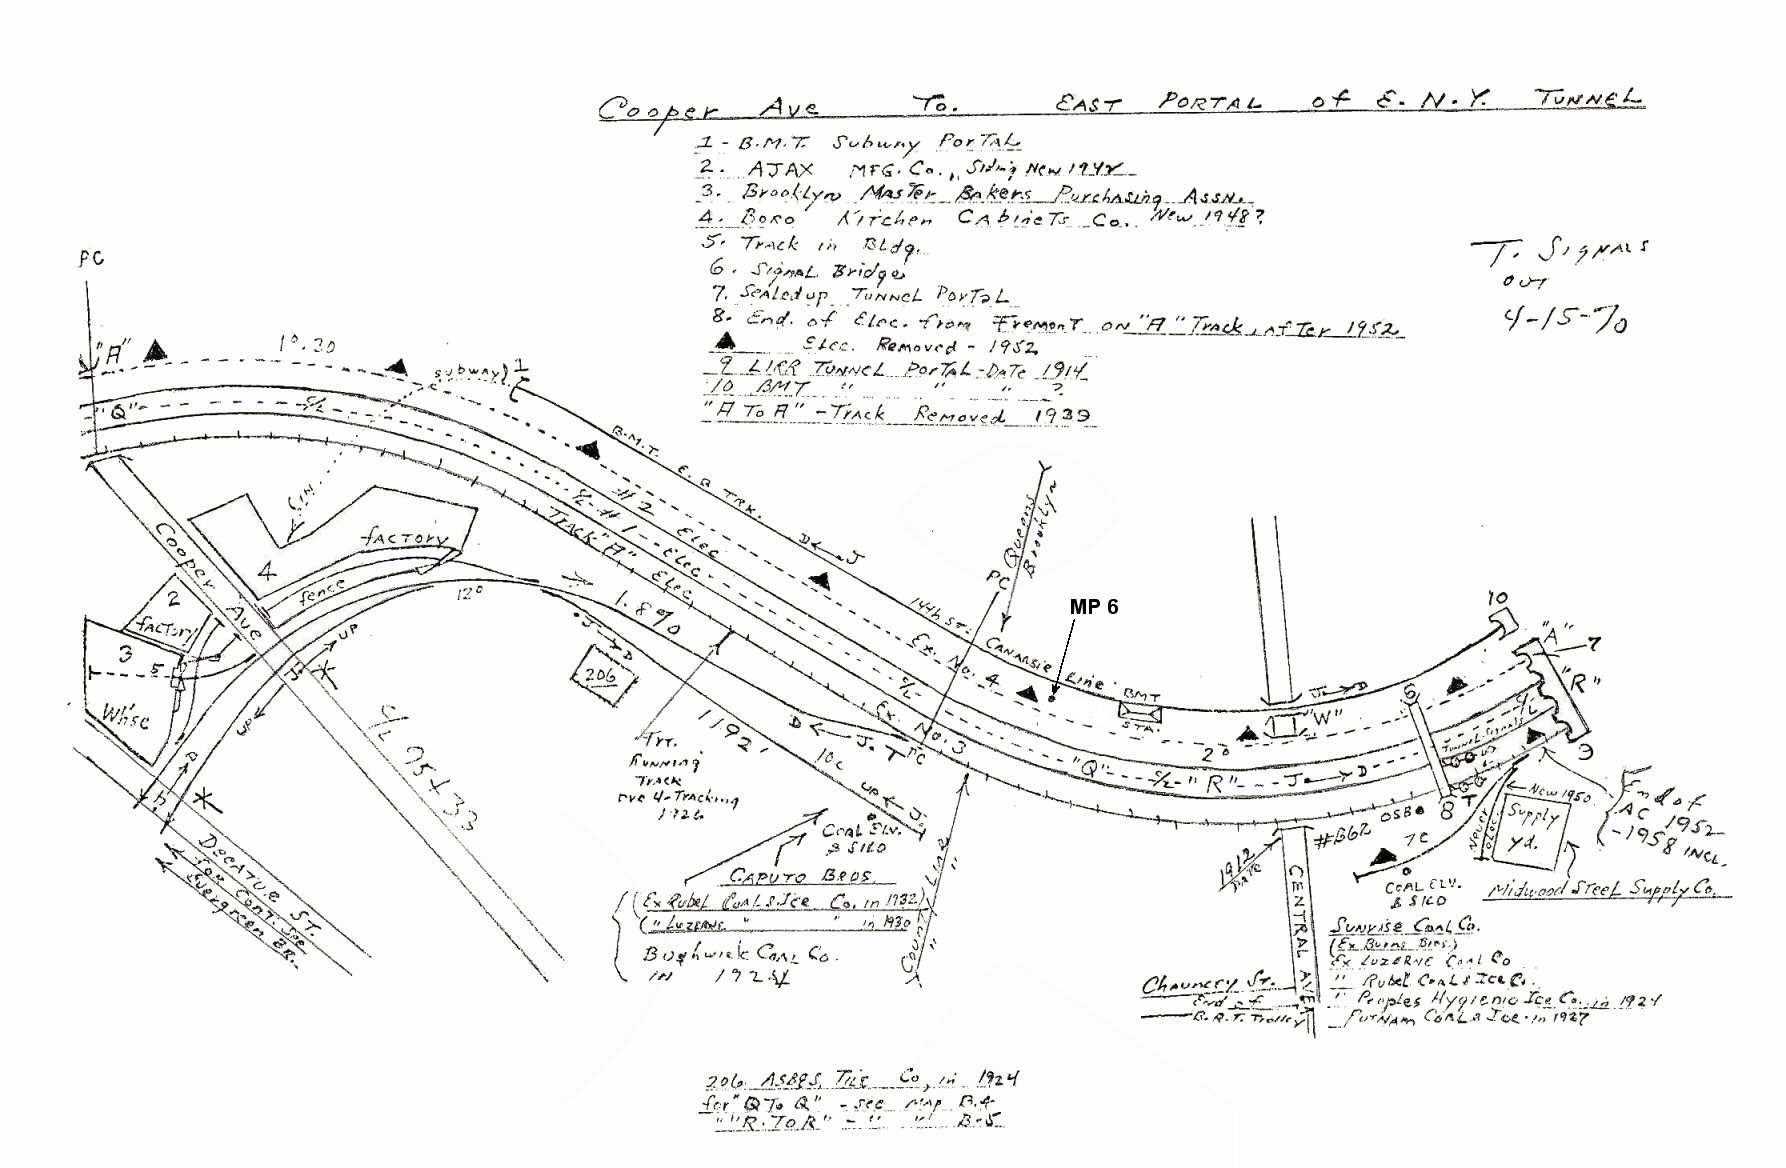 Cooper Ave To. EAST PORTAL of E.N.Y. TUNNEL
1 - B.M.T. Subway PORTAL
2. AJAX MFG. Co., Siding New 1942
3. Brooklyn MASTER BAKERS Purchasing ASSN.
4. BORO KITCHEN CABINETS Co. New 1948?
5. TRACK in Bldg.
6. SIGNAL Bridge
7. Sealed up TUNNEL PORTAL
8. End. of Elec. from FremonT on "A" Track, AFTER 1952.
▲ ELEC. Removed - 1952
9 LIRR TUNNEL PORTAL - DATE 1914
10 BMT " " " ?
"A TO A" - TRACK Removed 1939
T. SIGNALS
OUT
4-15-70
PC
"A"
1°.30
subway
1
"Q"
C/L
B.M.T. E.B TRK.
D J
#2 ELEC
C/L #1 - ELEC
TRACK "A" ELEC.
factory
4
fence
2
factory
3
5
Whse
Cooper Ave
12°
UP
1.8%
J D
206
C/L 95+33
DECATUR ST.
for CONT. see
Evergreen BR.
1192'
TRK.
RUNNING
TRACK
pre 4-TRACKING
1926
D J. T
10c UP J.
PC
Queens
Brooklyn
14th ST. CANARSIE Line
Ex. No. 4
C/L
Ex. No. 3
MP 6
BMT
STA.
"W"
J. D
2°
"Q" C/L "R" J. D
6
10
"A"
7
"R"
C/L
Tunnel Signals
9
T
8
OSB
#B62
7c
New 1950
Never elec.
Supply
yd.
End of
AC 1952
-1958 INCL.
Midwood STEEL Supply Co.
COAL ELV.
& SILO
CAPUTO BROS.
(Ex Rubel COAL & Ice Co. in 1932)
(" LUZERNE " " in 1930
Bushwick COAL Co.
IN 1924
County Line
1912
DATE
CENTRAL AVE
COAL ELV.
& SILO
SUNRISE COAL Co.
(Ex Burns Bros.)
Ex LUZERNE COAL Co
" Rubel COAL & Ice Co.
" Peoples Hygienic Ice Co. in 1924
PUTNAM COAL & Ice - in 1927
Chauncey ST.
End of
B.R.T. Trolley
206. ASBQS, TILE Co, in 1924
for "Q TO Q" - see MAP B.4
" "R. TO R" - " " B-5